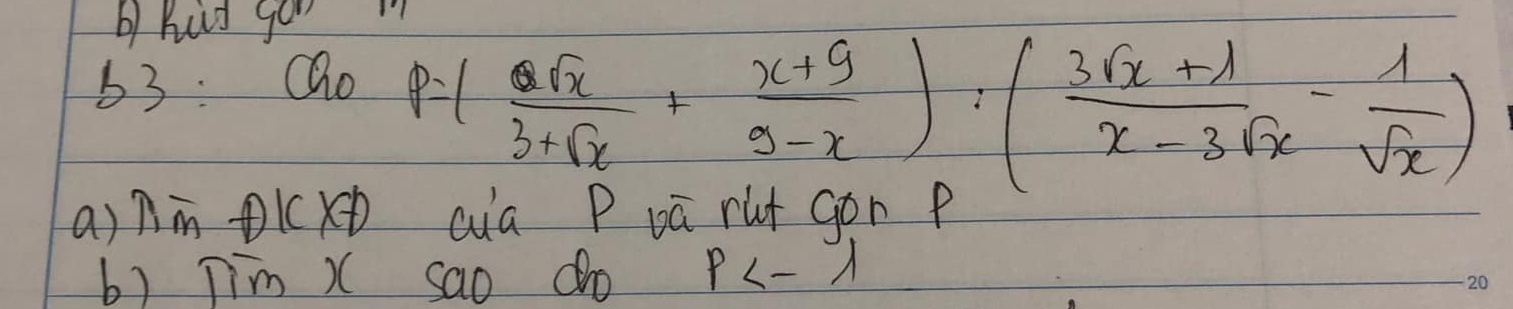 b) Rút gọn M
b3: Cho P = ( √x / (3+√x) + (x+9) / (9-x) ) : ( (3√x+1) / (x-3√x) - 1 / √x )
a) Tìm ĐKXĐ của P và rút gọn P
b) Tìm x sao cho P < -1
20